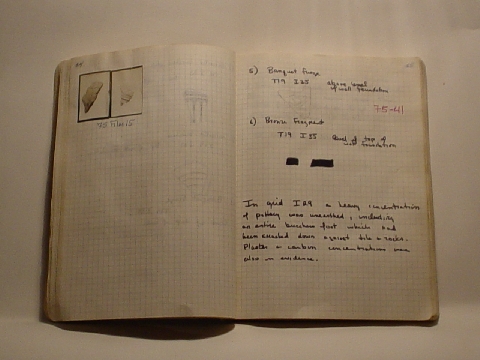 5) Bronze
T19 I 25 above level
of wall foundation
75-41
6) Bronze Fragment
T19 I 25 Level of top of
wall foundation
In grid I 29 a heavy concentration
of pottery was unearthed, including
an entire foot which had
been crushed down against tile & rocks.
Plaster & carbon concentrations were
also in evidence.